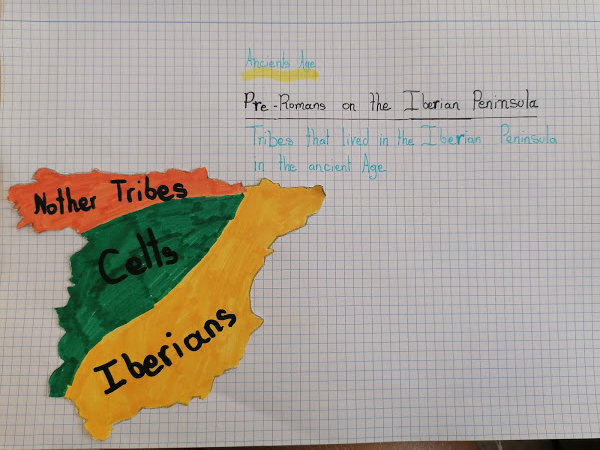 Ancients Age
Pre-Romans on the Iberian Peninsula
Tribes that lived in the Iberian Peninsula
in the ancient Age
Nother Tribes
Celts
Iberians